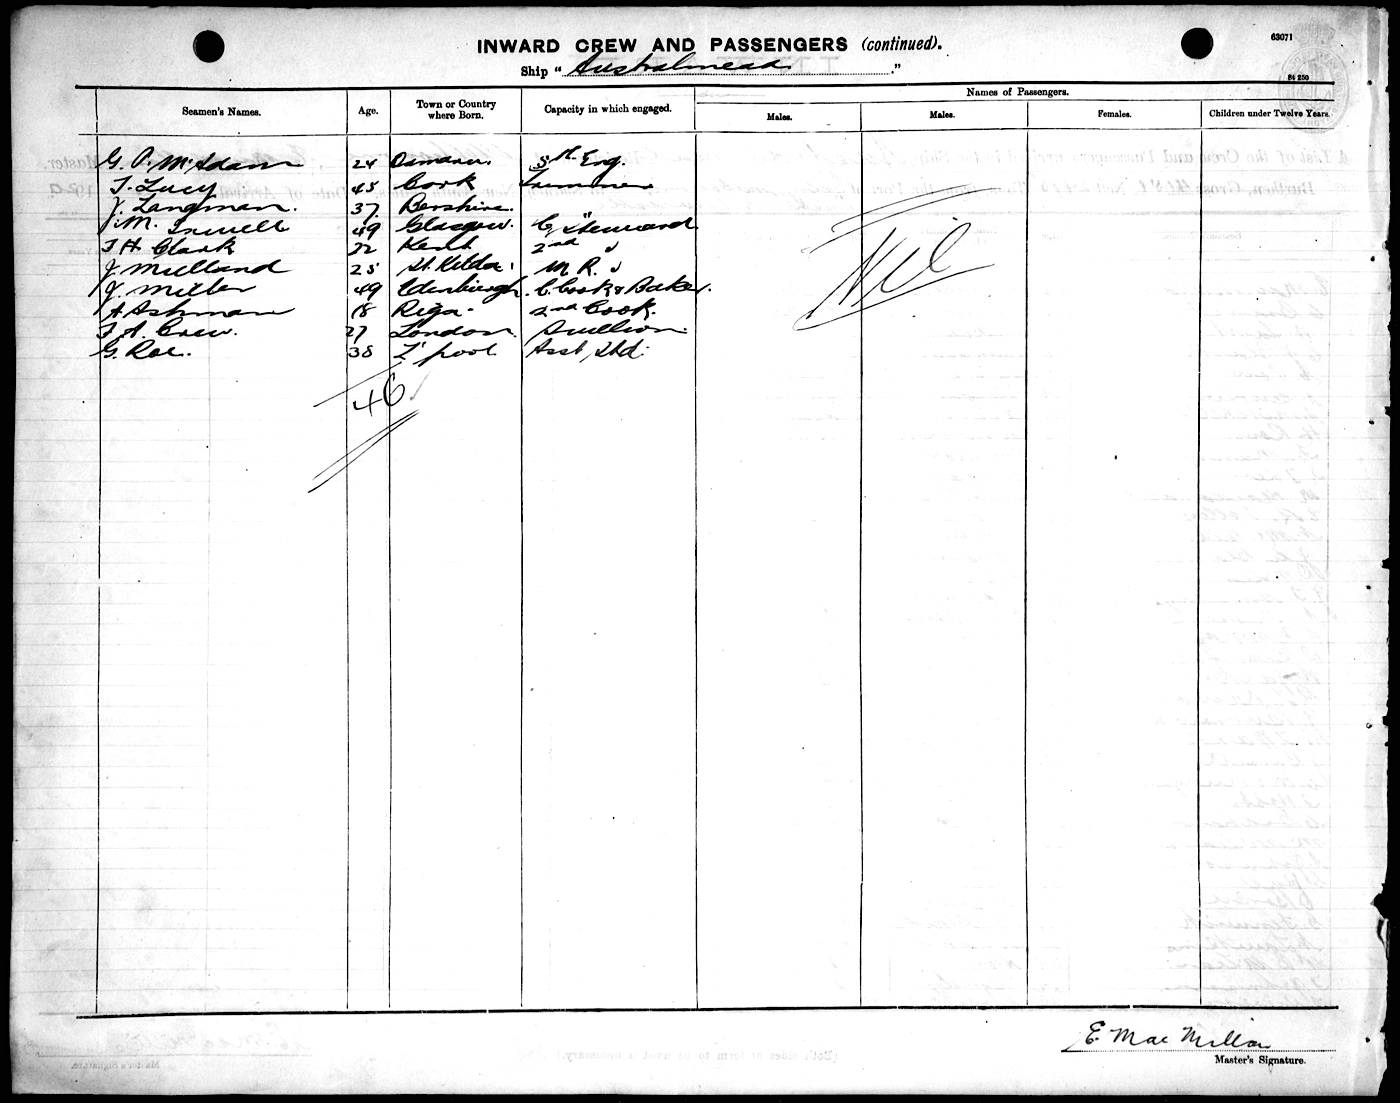 63071
INWARD CREW AND PASSENGERS (continued).
Ship "Australmead."
84 250
Seamen's Names. Age. Town or Country where Born. Capacity in which engaged. Names of Passengers.
Males. Males. Females. Children under Twelve Years.
G. A. McAdam 24 5th Eng.
T. Lucy 45 Cork Trimmer
J. Langman. 37 Bershire.
J. M. 49 Glasgow. C. Steward
T H. Clark 22 Kent 2nd "
J. 25 St. Kilda. M R. "
J. Miller 49 Edenburogh. C. Cook & Baker.
A Ashman 18 Riga. 2nd Cook.
F. A. Crew. 27 London Scullion.
G. Roe. 38 L'pool Asst. Std.
Nil
46
E. MacMillan
Master's Signature.